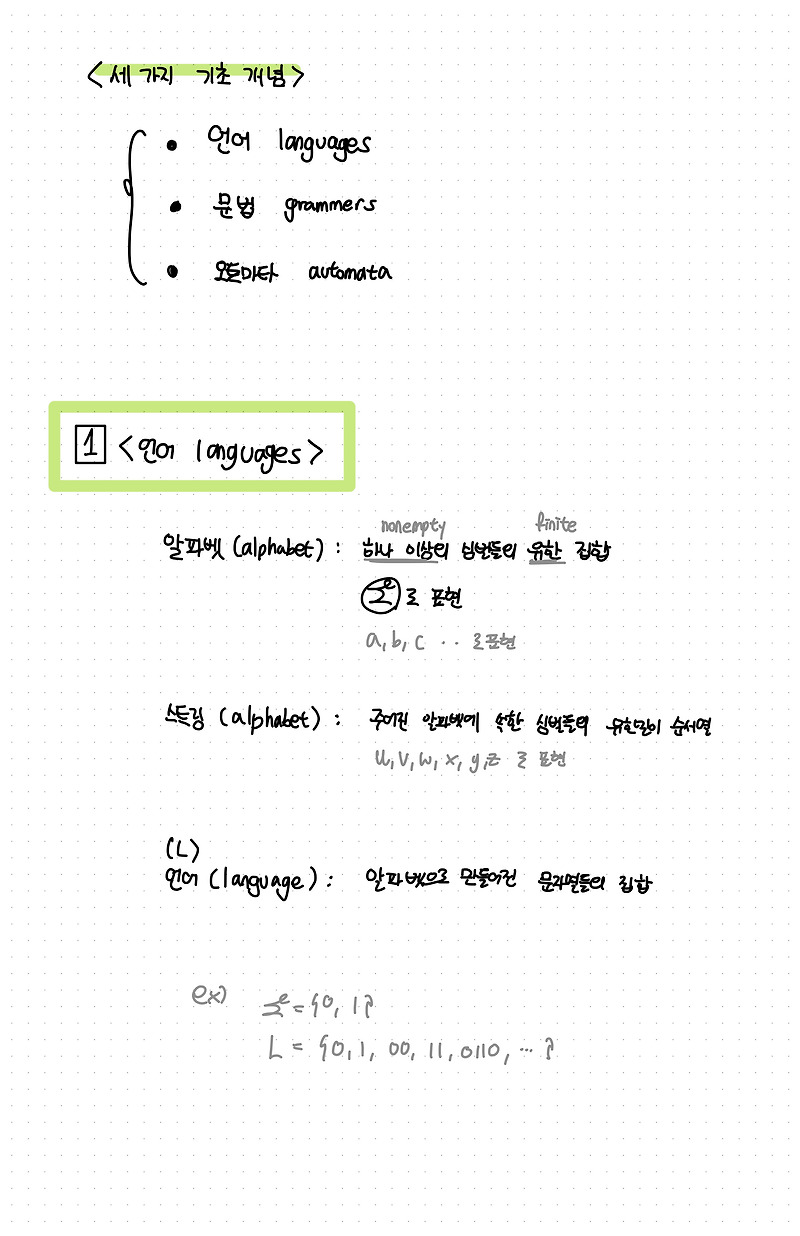 <세 가지 기초 개념>
• 언어 languages
• 문법 grammers
• 오토마타 automata
1 <언어 languages>
nonempty finite
알파벳 (alphabet) : 하나 이상의 심벌들의 유한 집합
Σ로 표현
a, b, c ‥ 로 표현
스트링 (alphabet) : 주어진 알파벳에 속한 심벌들의 유한길이 순서열
u, v, w, x, y, z 로 표현
(L)
언어 (language) : 알파벳으로 만들어진 문자열들의 집합
ex) Σ = {0, 1}
L = {0, 1, 00, 11, 0110, … }